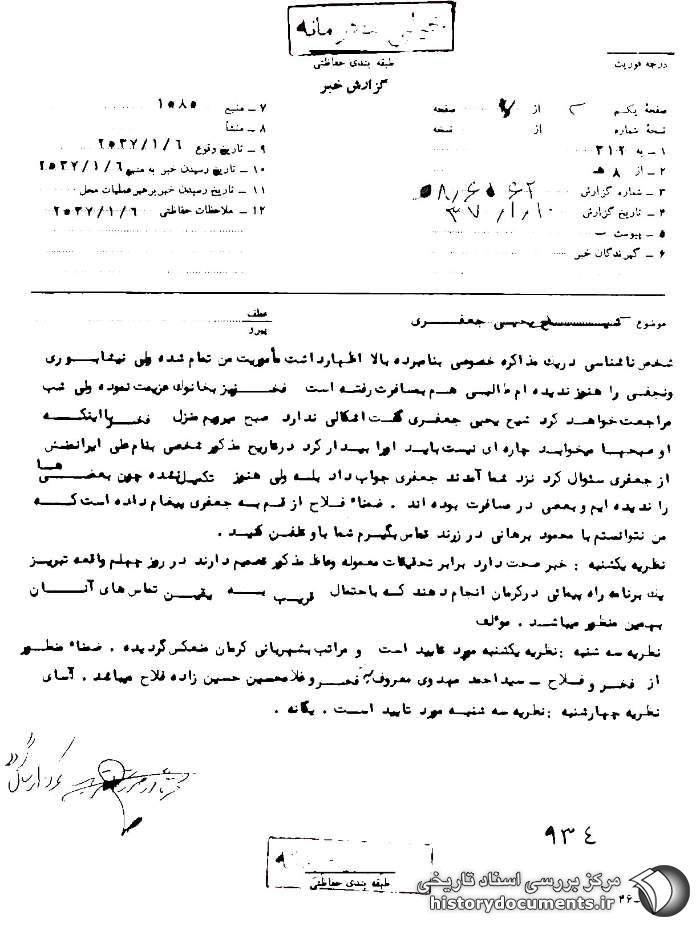 خیلی محرمانه
طبقه بندی حفاظتی
گزارش خبر
درجه فوریت
صفحهٔ یکم از صفحه
نسخهٔ شماره از نسخه
۱ – به ۳۱۲
۲ – از ۸ هـ
۳ – شماره گزارش
۴ – تاریخ گزارش ۳۷/۱/۱۰
۵ – پیوست
۶ – گیرندگان خبر
۷ – منبع ۱۰۸۵
۸ – منشأ
۹ – تاریخ وقوع ۲۵۳۷/۱/۶
۱۰ – تاریخ رسیدن خبر به منبع ۲۵۳۷/۱/۶
۱۱ – تاریخ رسیدن خبر برهبر عملیات محل
۱۲ – ملاحظات حفاظتی ۲۵۳۷/۱/۶
موضوع شیخ یحیی جعفری
عطف
پیرو
شخص ناشناسی در یک مذاکره خصوصی بنامبرده بالا اظهار داشت مأموریت من تمام شده ولی نیشابوری
ونجفی را هنوز ندیده ام طالبی هم بمسافرت رفته است فخر نیز بخانوک عزیمت نموده ولی شب
مراجعت خواهد کرد شیخ یحیی جعفری گفت اشکالی ندارد صبح میرویم منزل فخر با اینکه
او صبحها میخوابد چاره ای نیست باید اورا بیدار کرد درتاریخ مذکور شخصی بنام علی ایرانمنش
از جعفری سئوال کرد نزد شما آمدند جعفری جواب داد بله ولی هنوز تکمیل نشده چون بعضی ها
را ندیده ایم و بعضی در مسافرت بوده اند . ضمناً فلاح از قم به جعفری پیغام داده است که
من نتوانستم با محمود برهانی در زرند تماس بگیرم شما با و تلفن کنید .
نظریه یکشنبه : خبر صحت دارد برابر تحقیقات معموله وعاظ مذکور تصمیم دارند در روز چهلم واقعه تبریز
یک برنامه راه پیمائی درکرمان انجام دهند که باحتمال قریب به یقین تماس های آنان
بهمین منظور میباشد . مؤلف
نظریه سه شنبه : نظریه یکشنبه مورد تایید است و مراتب بشهربانی کرمان منعکس گردیده . ضمناً منظور
از فخر و فلاح – سید احمد مهدوی معروف به فخر و غلامحسین حسین زاده فلاح میباشد . آسای
نظریه چهارشنبه : نظریه سه شنبه مورد تایید است . یگانه .
۹۳۴
طبقه بندی حفاظتی
مرکز بررسی اسناد تاریخی
historydocuments.ir
۴۶